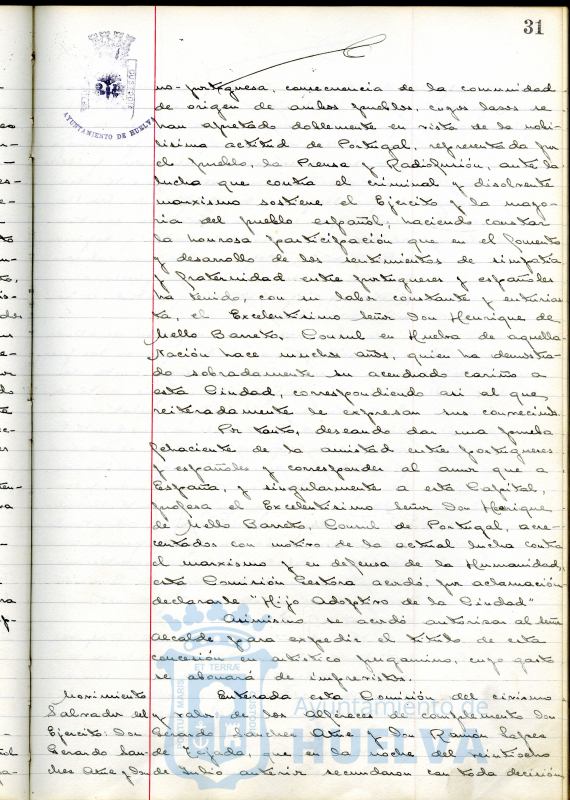 31
AYUNTAMIENTO DE HUELVA
no-portuguesa, consecuencia de la comunidad
de origen de ambos pueblos, cuyos lasos se
han apretado doblemente en vista de la nobi-
lisima actitud de Portugal, representada por
el pueblo, la Prensa y Radiofusión, ante la
lucha que contra el criminal y disolvente
marxismo sostiene el Ejercito y la mayo-
ria del pueblo español; haciendo constar
la honrosa participación que en el fomento
y desarrollo de los sentimientos de simpatia
y fraternidad entre portugueses y españoles
ha tenido, con su labor constante y entusias-
ta, el Excelentisimo Señor Don Henrique de
Mello Barreto, Consul en Huelva de aquella
Nación hace muchos años, quien ha demostra-
do sobradamente su acendrado cariño a
esta Ciudad, correspondiendo asi al que,
reiteradamente le expresan sus convecinos.
Por tanto, deseando dar una prueba
fehaciente de la amistad entre portugueses
y españoles y corresponder al amor que a
España, y singularmente a esta Capital,
profesa el Excelentisimo Señor Don Henrique
de Mello Barreto, Consul de Portugal, acre-
centados con motivo de la actual lucha contra
el marxismo y en defensa de la Humanidad,
esta Comisión Gestora acordó, por aclamación
declararle "Hijo Adoptivo de la Ciudad"
Asimismo se acordó autorizar al Señor
alcalde para expedir el titulo de esta
concesión en artistico pergamino, cuyo gasto
se abonará de imprevistos.
Movimiento
Salvador del
Ejercito: Don
Gerardo San-
chez Ame y Don
Enterada esta Comisión del civismo
y valor de los alféreces de complemento Don
Gerardo Sanchez Ame y Don Ramón Lopez
de Tejada, que en la noche del veintiocho
de Julio anterior secundaron con toda decisión
Ayuntamiento de
HUELVA
PORTUS MARIS ET TERRÆ CUSTODIA